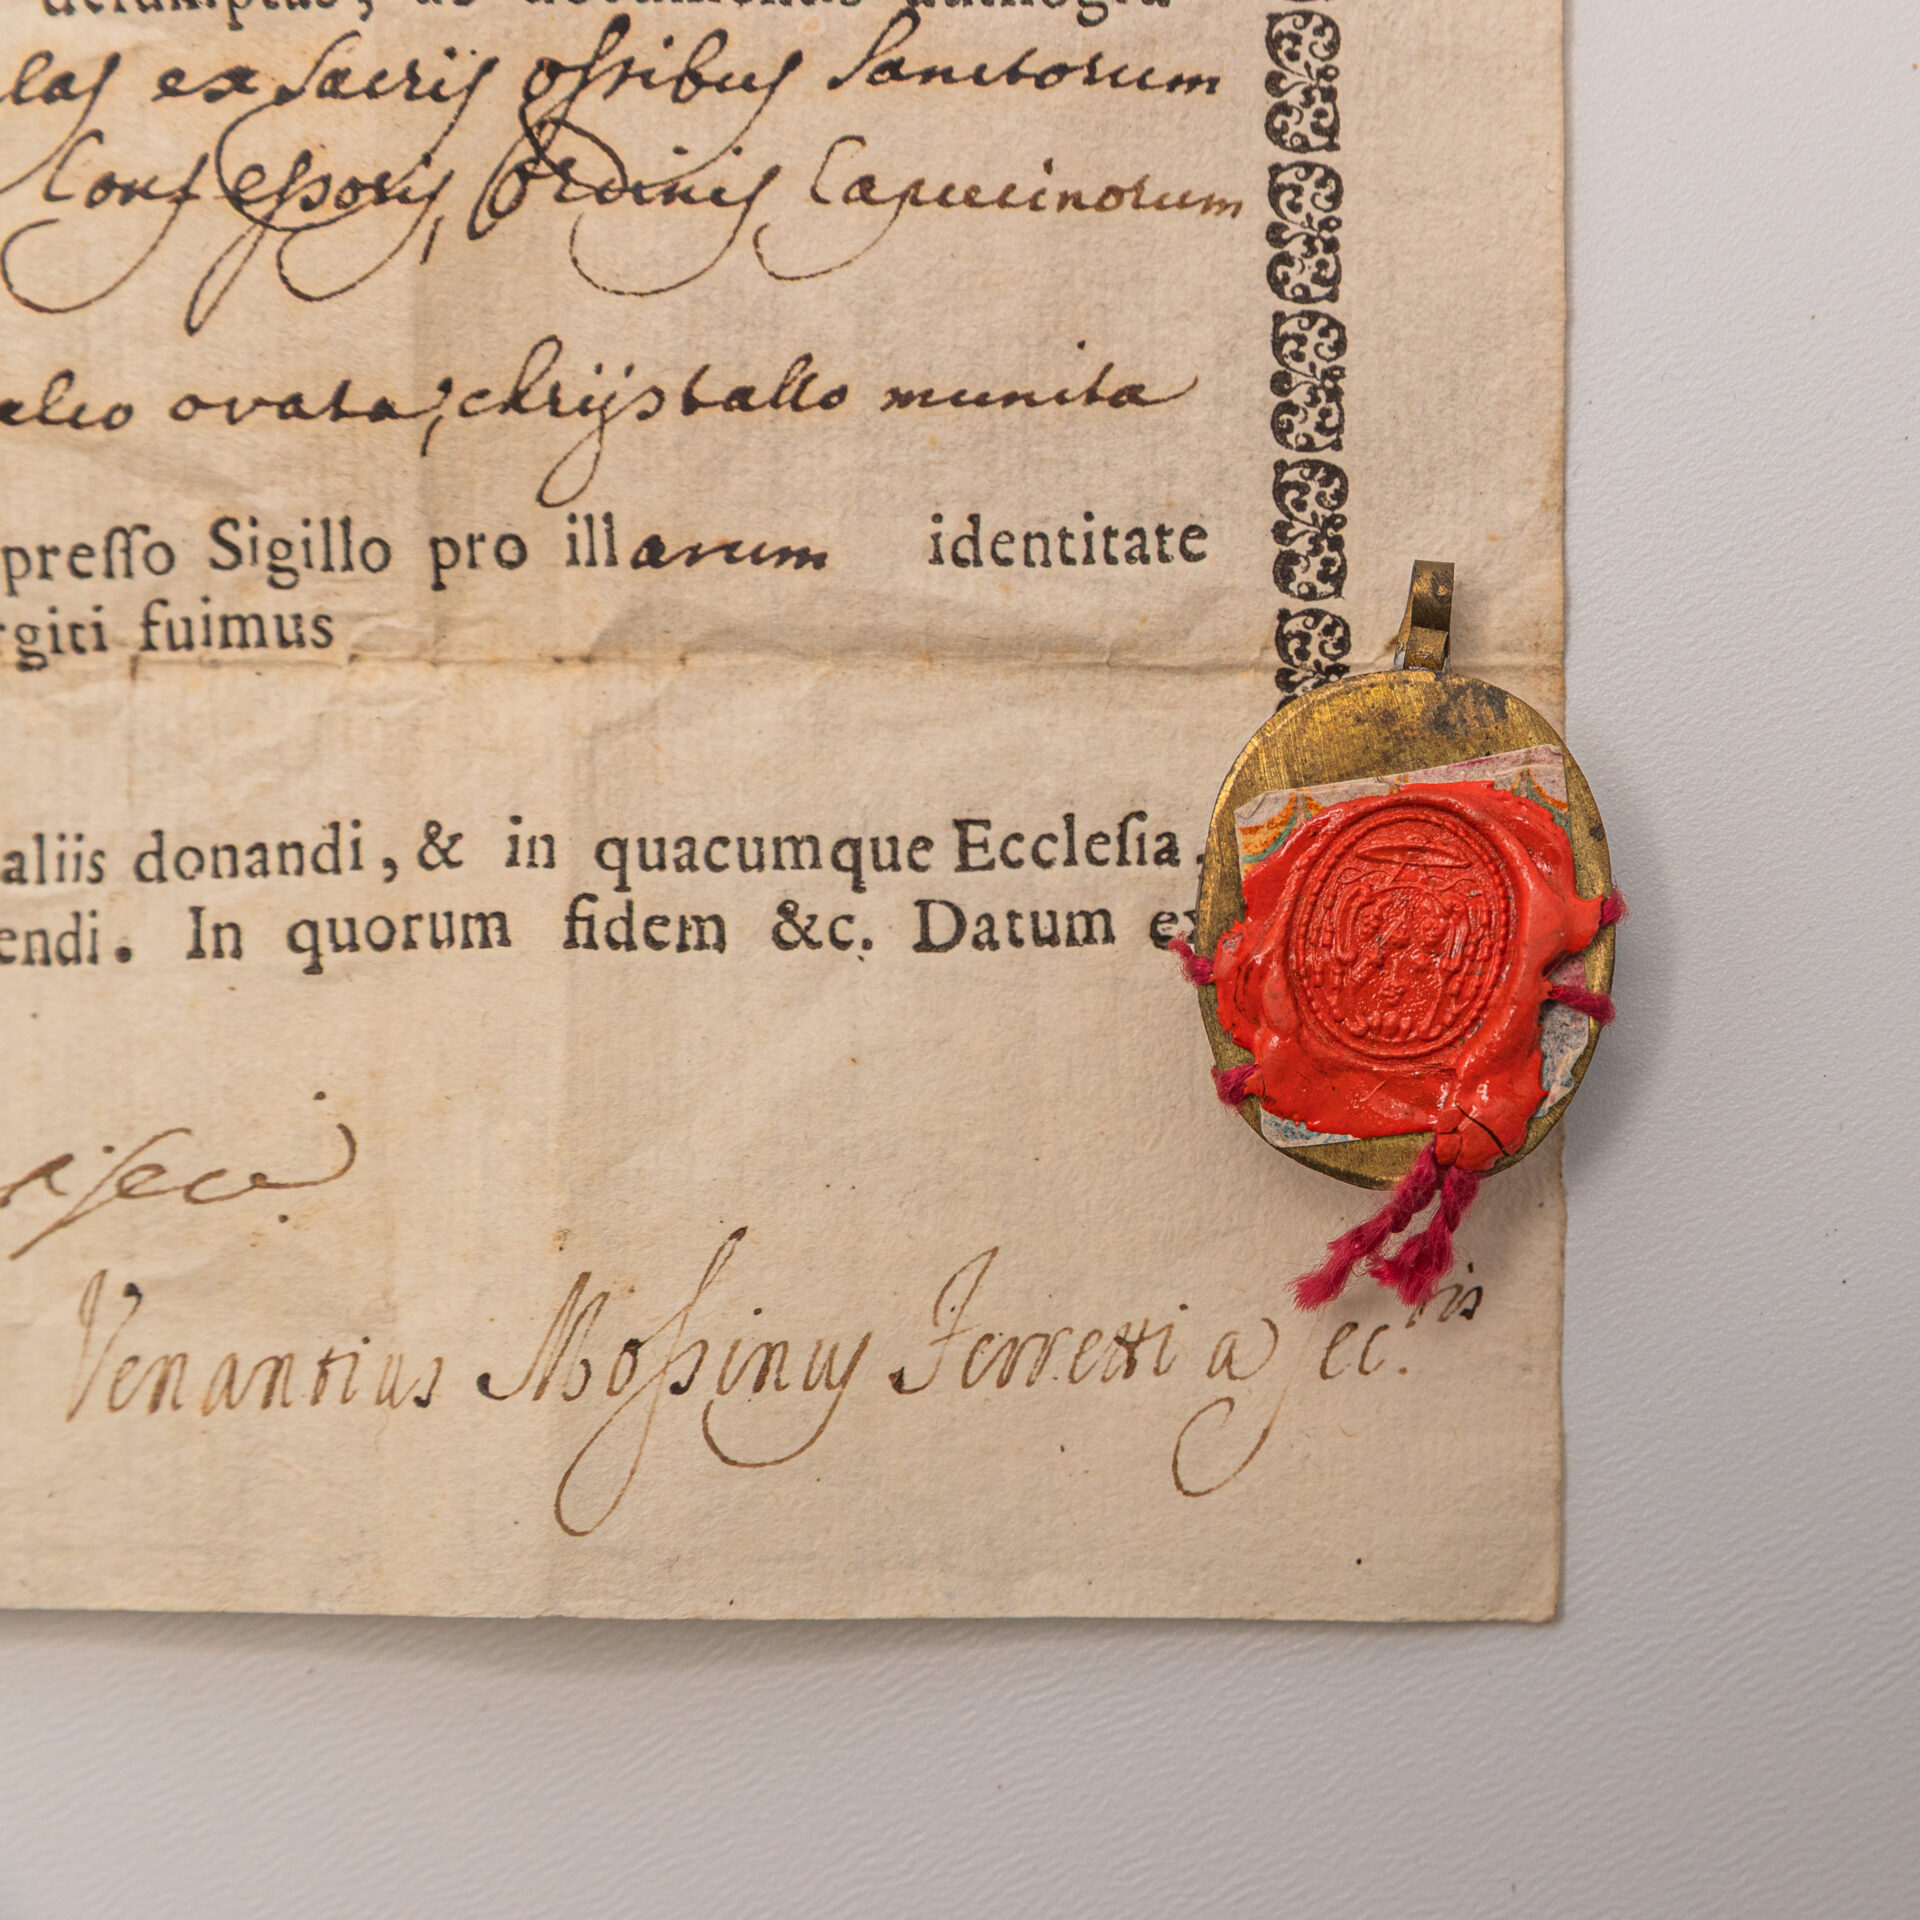 las ex Sacrijs ossibus Sanctorum
Confessoris, Ordinis Capuccinorum
ovata, chrijstallo munita
presſo Sigillo pro illarum identitate
rgiti fuimus
aliis donandi, & in quacumque Eccleſia,
endi. In quorum fidem &c. Datum ex
Venantius Mossinus Ferretti a sec.tis